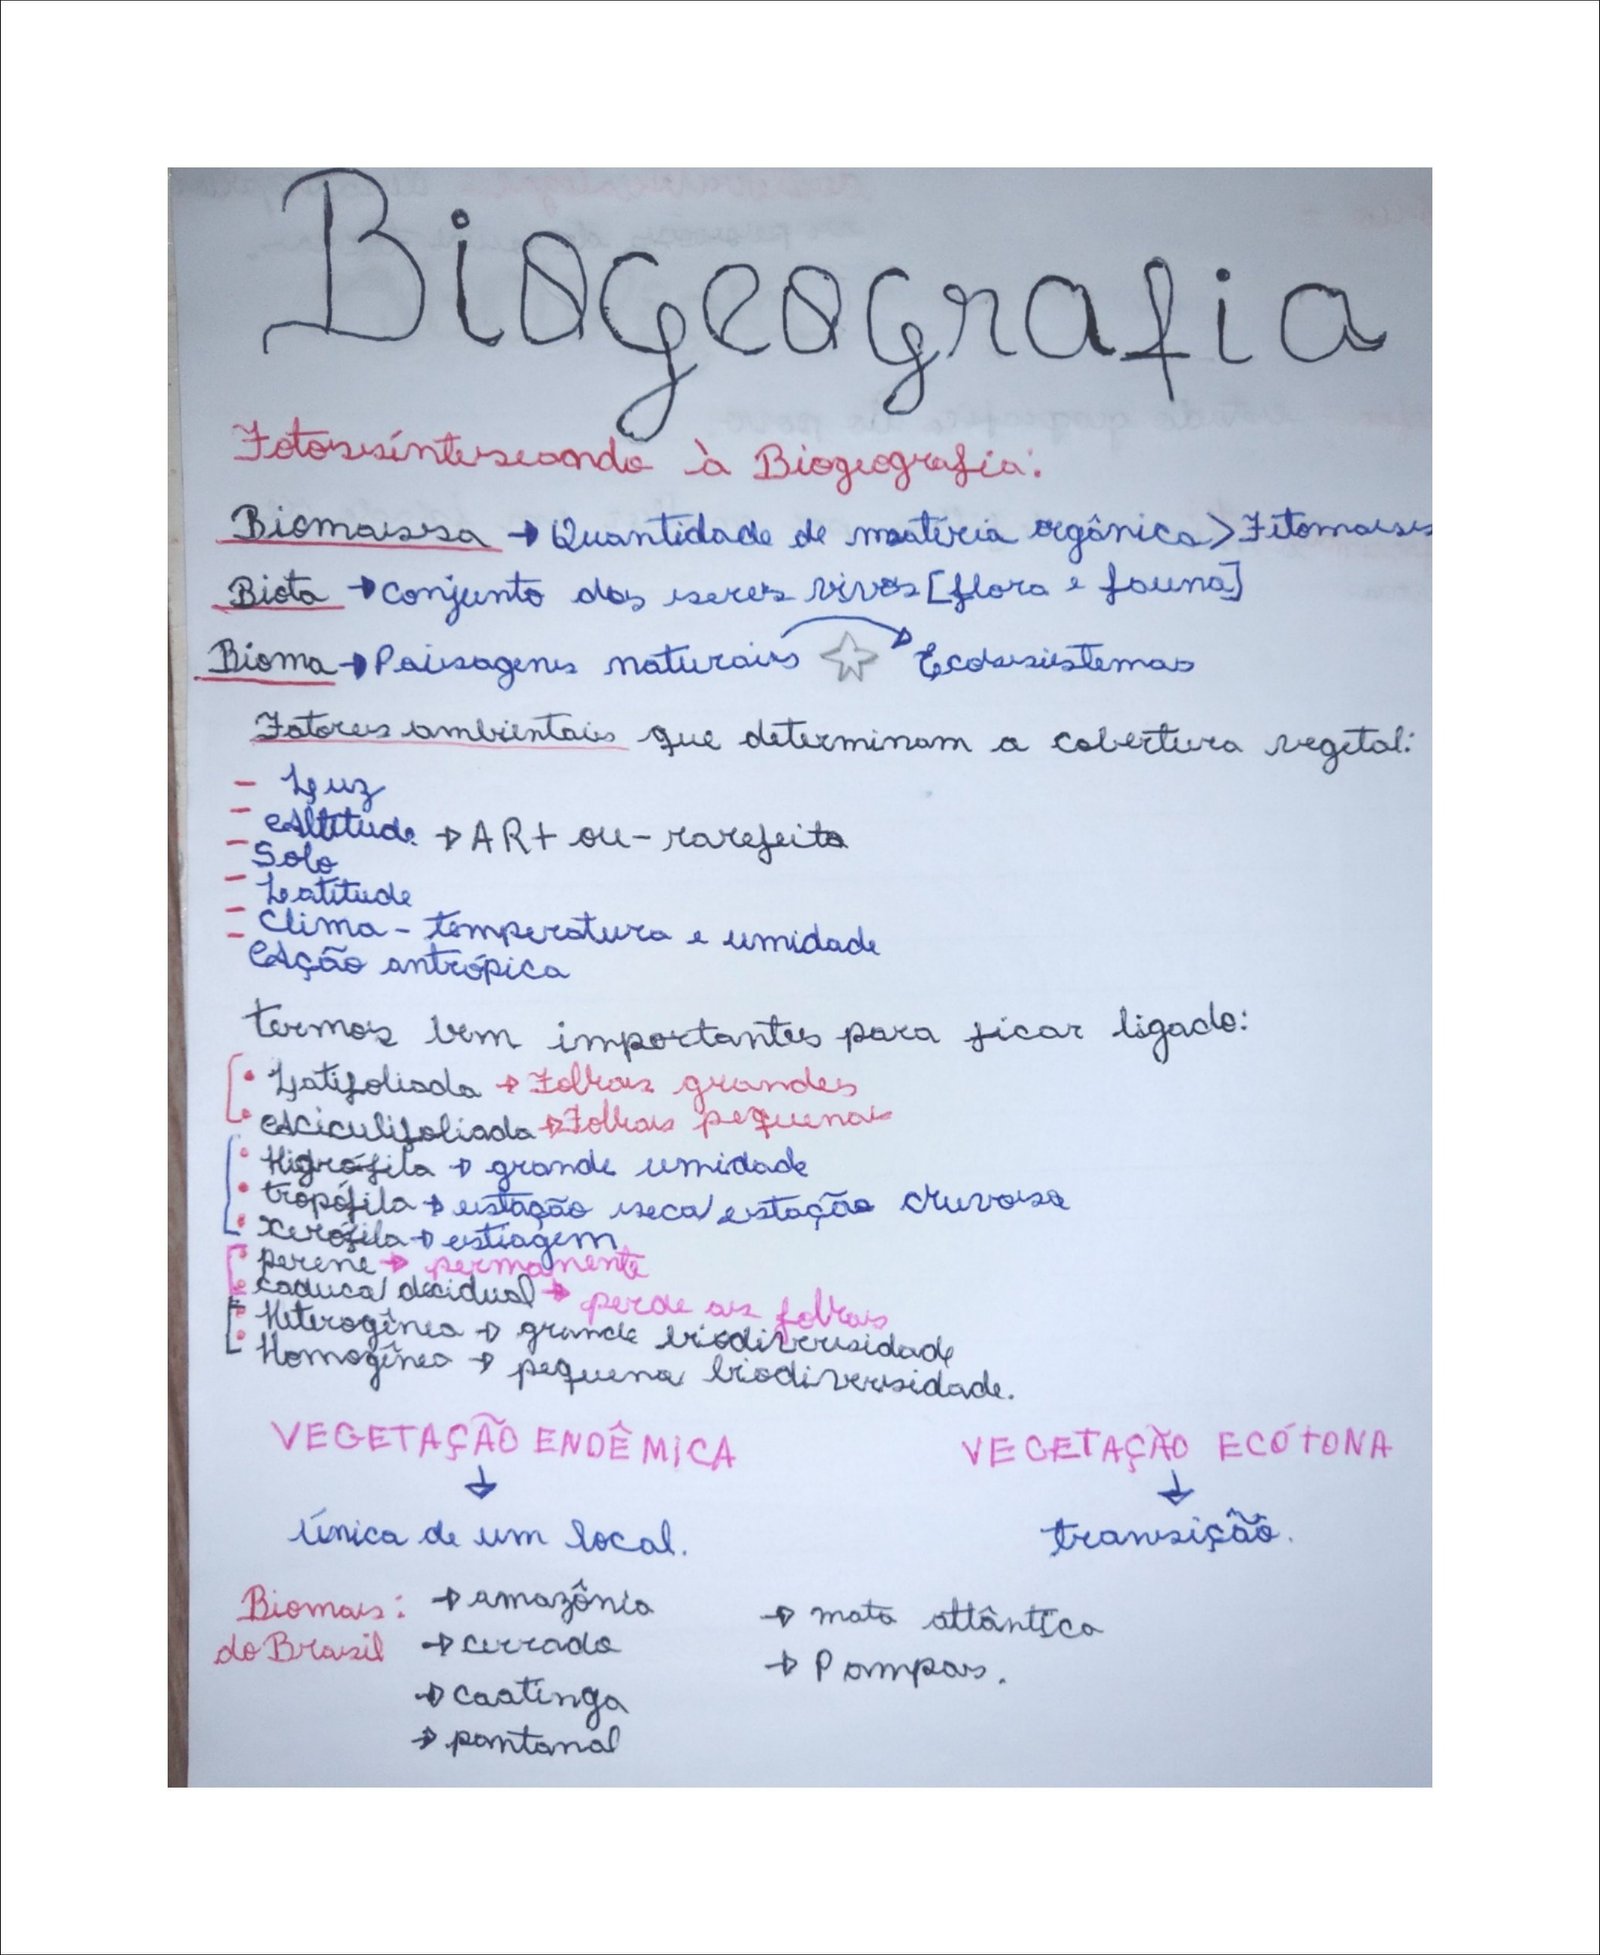 Biogeografia
Fotossinteseando à Biogeografia:
Biomassa → Quantidade de matéria orgânica > Fitomass
Biota → Conjunto dos seres vivos [flora e fauna]
Bioma → Paisagens naturais → Ecossistemas
Fatores ambientais que determinam a cobertura vegetal:
- Luz
- Altitude → AR + ou - rarefeito
- Solo
- Latitude
- Clima - temperatura e umidade
- Ação antrópica
termos bem importantes para ficar ligado:
• Latifoliada → Folhas grandes
• Aciculifoliada → Folhas pequenas
• Higrófila → grande umidade
• tropófila → estação seca/estação chuvosa
• Xerófila → estiagem
• perene → permanente
• caduca/decidual → perde as folhas
• Heterogênea → grande biodiversidade
• Homogênea → pequena biodiversidade.
VEGETAÇÃO ENDÊMICA VEGETAÇÃO ECÓTONA
única de um local. transição.
Biomas: → amazônia → mata atlântica
do Brasil → cerrado → Pampas.
→ caatinga
→ pantanal